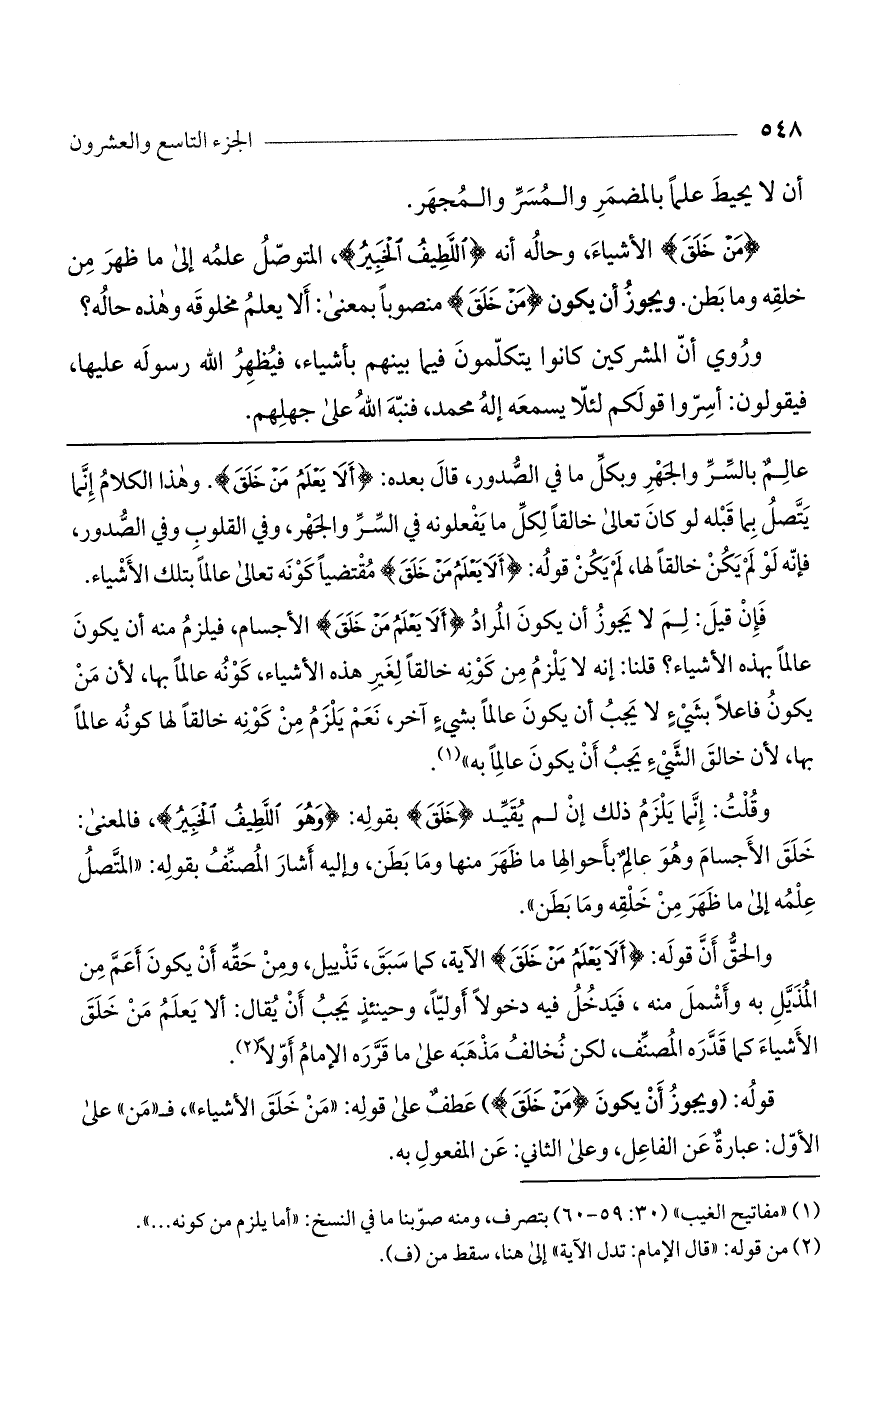 ٥٤٨ ــــــــــــــــــــ الجزء التاسع والعشرون
أن لا يحيطَ علماً بالمضمَرِ والـمُسَرِّ والـمُجهَر.
﴿مَنْ خَلَقَ﴾ الأشياءَ، وحالُه أنه ﴿ٱللَّطِيفُ ٱلْخَبِيرُ﴾، المتوصّلُ علمُه إلىٰ ما ظهرَ مِن
خلقِه وما بَطن. ويجوزُ أن يكون ﴿مَنْ خَلَقَ﴾ منصوباً بمعنىٰ: أَلا يعلمُ مخلوقَه وهٰذه حالُه؟
ورُوي أنّ المشركين كانوا يتكلّمونَ فيما بينهم بأشياء، فيُظهِرُ الله رسولَه عليها،
فيقولون: أسِرّوا قولَكم لئلّا يسمعَه إلهُ محمد، فنبّهَ اللهُ علىٰ جهلِهم.
عالِـمٌ بالسِّـرِّ والجَهْرِ وبكلِّ ما في الصُّدور، قالَ بعده: ﴿أَلَا يَعْلَمُ مَنْ خَلَقَ﴾. وهٰذا الكلامُ إنَّما
يَتَّصلُ بما قَبْله لو كانَ تعالىٰ خالقاً لِكلِّ ما يَفْعلونه في السِّـرِّ والجَهْر، وفي القلوبِ وفي الصُّدور،
فإنّه لَوْ لَمْ يَكُنْ خالقاً لها، لَمْ يَكُنْ قولُه: ﴿أَلَا يَعْلَمُ مَنْ خَلَقَ﴾ مُقْتضياً كَوْنَه تعالىٰ عالماً بتلك الأَشْياء.
فَإِنْ قيلَ: لِـمَ لا يَجوزُ أن يكونَ المُرادُ ﴿أَلَا يَعْلَمُ مَنْ خَلَقَ﴾ الأجسام، فيلزمُ منه أن يكونَ
عالماً بهذه الأشياء؟ قلنا: إنه لا يَلْزمُ مِن كَوْنِه خالقاً لِغَيرِ هذه الأشياء، كَوْنُه عالماً بها، لأن مَنْ
يكونُ فاعلاً بشَيْءٍ لا يَجبُ أن يكونَ عالماً بشيءٍ آخر، نَعَمْ يَلْزَمُ مِنْ كَوْنِه خالقاً لها كونُه عالماً
بها، لأن خالقَ الشَّيْءِ يَجبُ أَنْ يكونَ عالِماً به»(١).
وقُلْتُ: إنَّما يَلْزَمُ ذلك إنْ لـم يُقَيِّـد ﴿خَلَقَ﴾ بقولِه: ﴿وَهُوَ ٱللَّطِيفُ ٱلْخَبِيرُ﴾، فالمعنىٰ:
خَلَقَ الأَجسامَ وهُوَ عالِمٌ بأَحوالِها ما ظَهَرَ منها ومَا بَطَن، وإليه أَشارَ المُصنِّفُ بقولِه: «المتَّصلُ
عِلْمُه إلىٰ ما ظَهَرَ مِنْ خَلْقِه ومَا بَطَن».
والحقُّ أَنَّ قولَه: ﴿أَلَا يَعْلَمُ مَنْ خَلَقَ﴾ الآية، كما سَبَقَ، تَذْييل، ومِنْ حَقِّه أَنْ يكونَ أَعَمَّ مِن
المُذَيَّلِ به وأَشْملَ منه ، فَيَدخُلُ فيه دخولاً أَوليّاً، وحينئذٍ يَجبُ أَنْ يُقال: أَلا يَعلَمُ مَنْ خَلَقَ
الأَشياءَ كما قَدَّرَه المُصنِّف، لكن نُخالفُ مَذْهبَه علىٰ ما قَرَّرَه الإمامُ أوّلاً(٢).
قولُه: (ويجوزُ أَنْ يكونَ ﴿مَنْ خَلَقَ﴾) عَطفٌ علىٰ قولِه: «مَنْ خَلَقَ الأشياء»، فـ«مَن» علىٰ
الأوّل: عبارةٌ عَن الفاعِل، وعلىٰ الثاني: عَن المفعولِ به.
(١) «مفاتيح الغيب» (٣٠: ٥٩-٦٠) بتصرف، ومنه صوّبنا ما في النسخ: «أما يلزم من كونه...».
(٢) من قوله: «قال الإمام: تدل الآية» إلىٰ هنا، سقط من (ف).